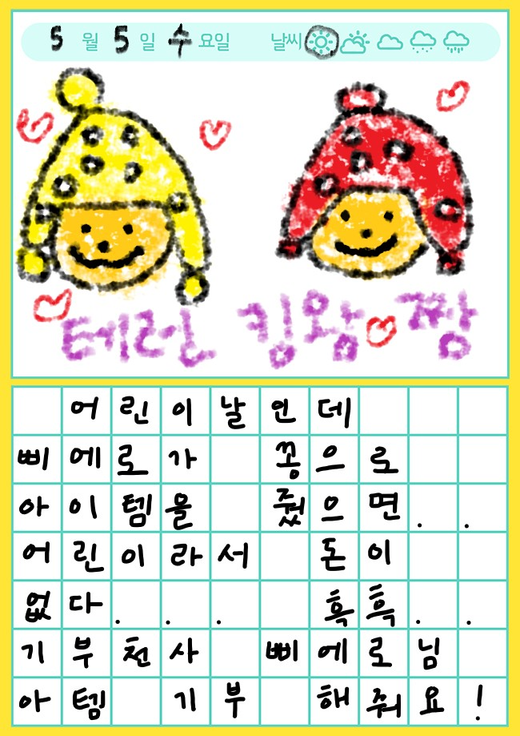 5 월 5 일 수 요일 날씨
테런 킹왕짱
어린이날인데
삐에로가 꽁으로
아이템을 줬으면..
어린이라서 돈이
없다... 흑흑..
기부천사 삐에로님
아템 기부 해줘요!